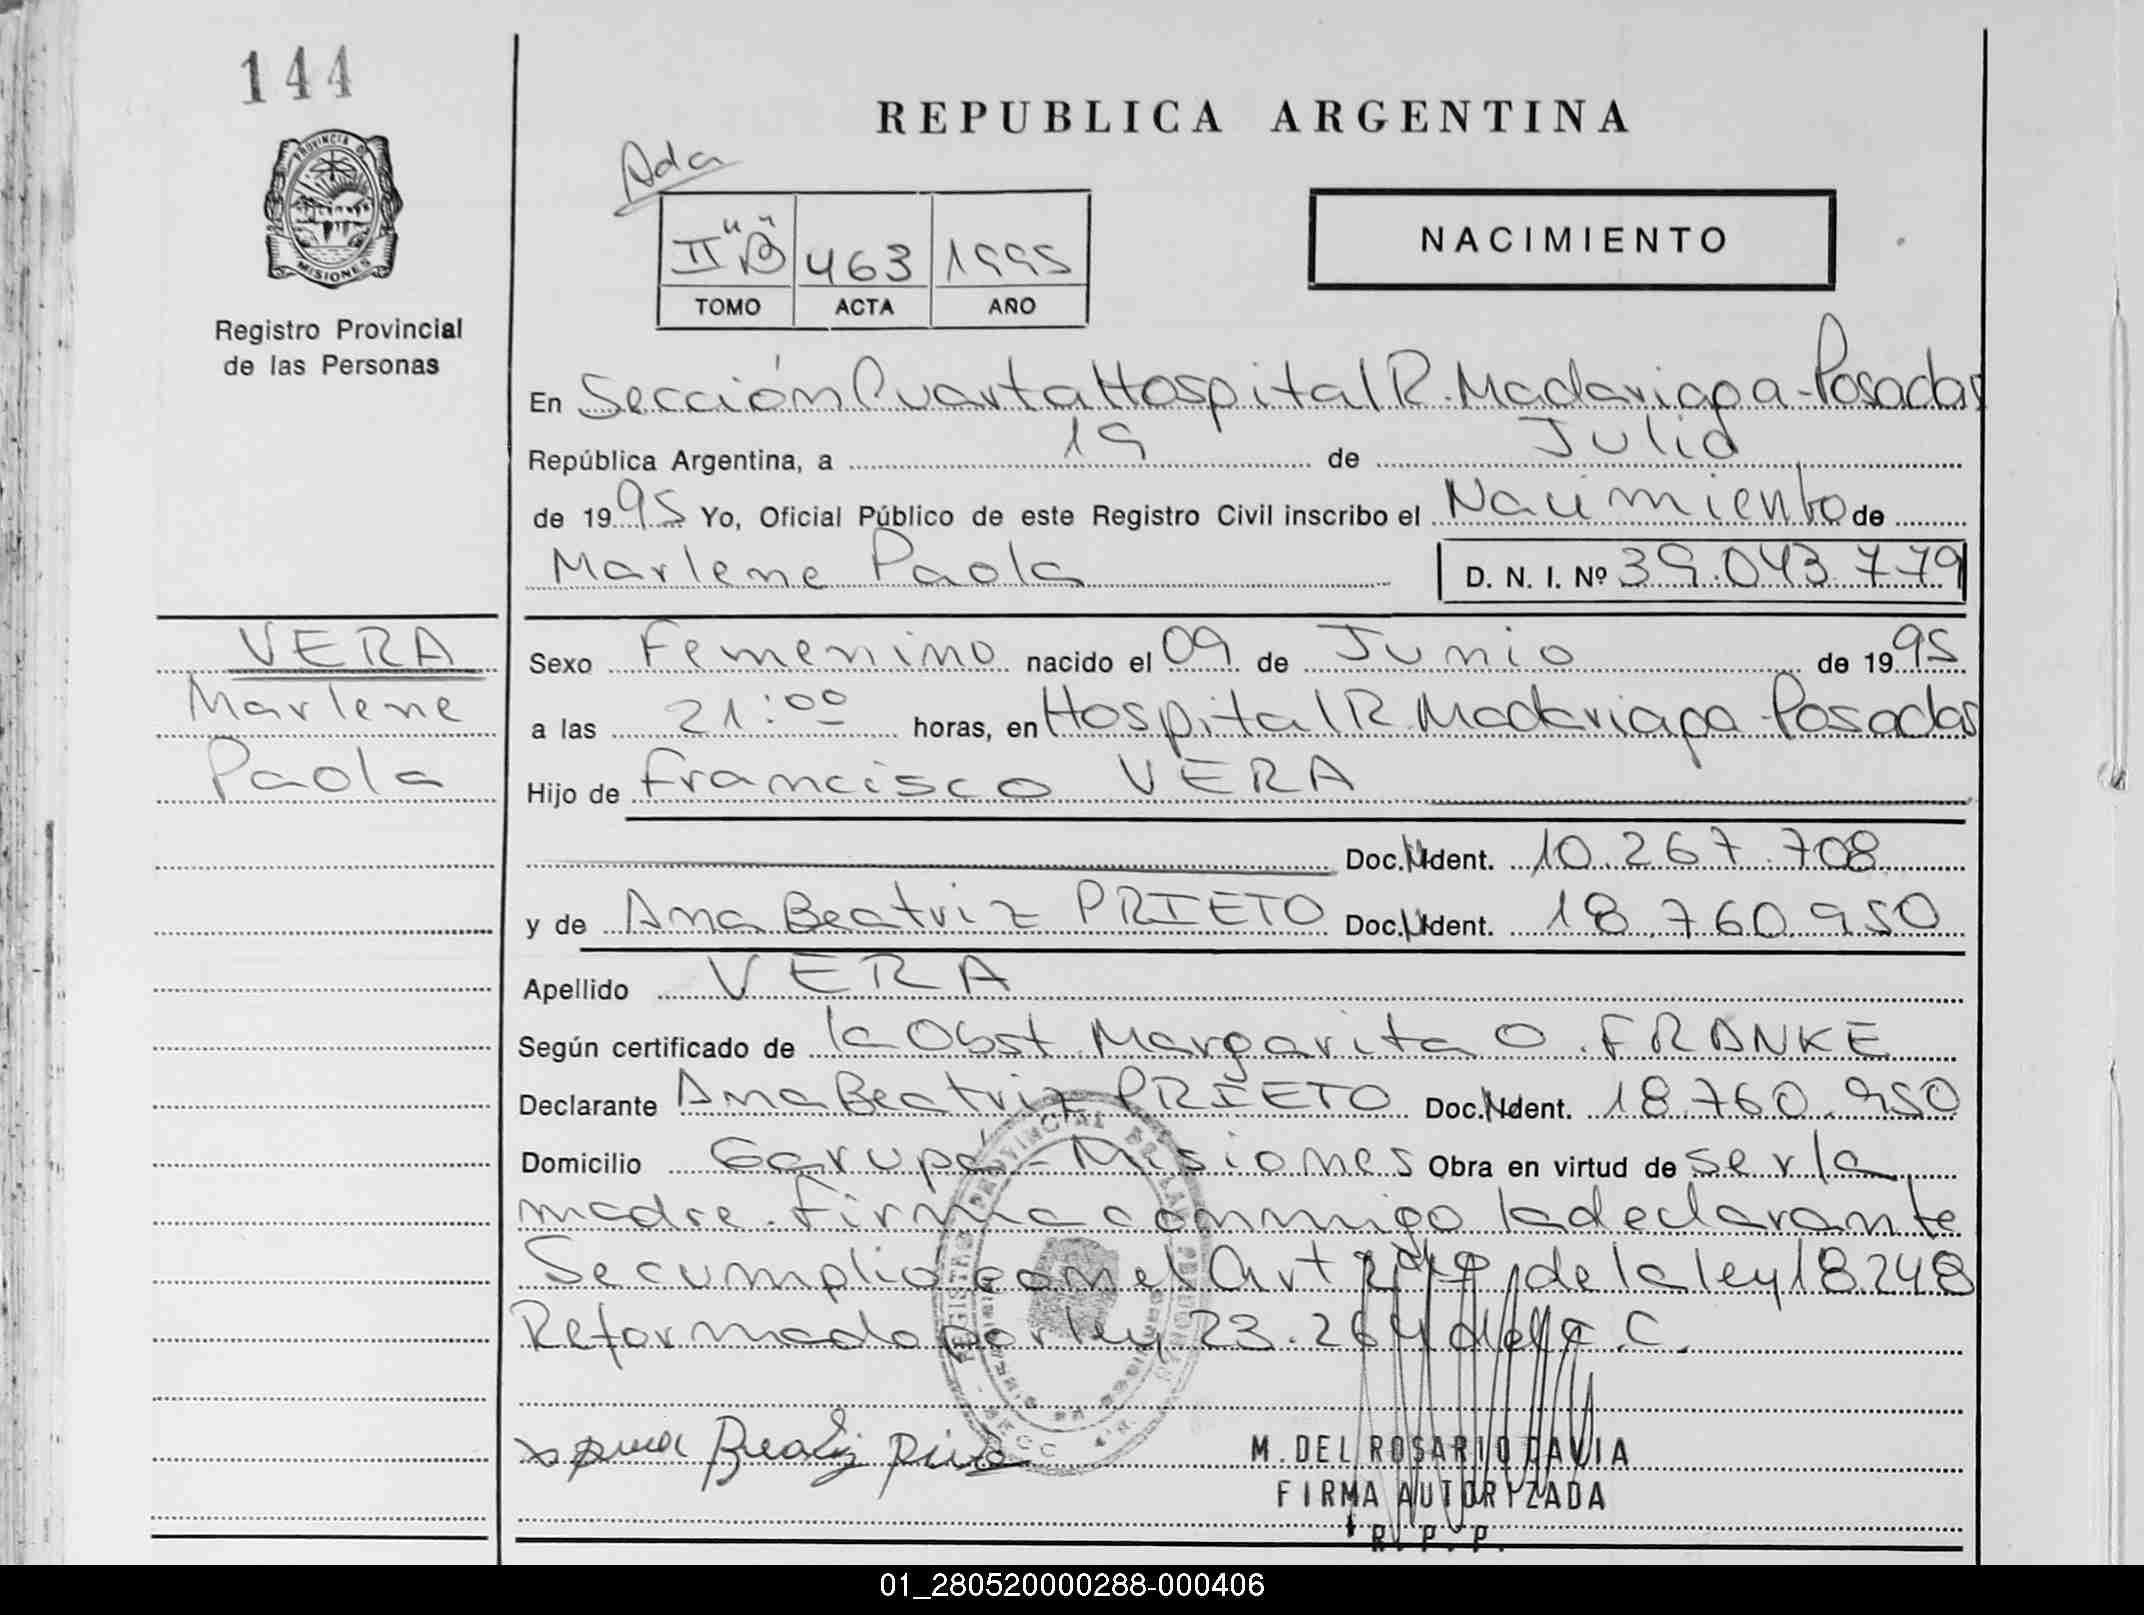 144
REPUBLICA ARGENTINA
Ada
PROVINCIA D
MISIONES
II "B" 463 1995
TOMO ACTA AÑO
NACIMIENTO
Registro Provincial
de las Personas
En Sección Cuarta Hospital R. Madariaga - Posadas
República Argentina, a 19 de Julio
de 1995 Yo, Oficial Público de este Registro Civil inscribo el Nacimiento de
Marlene Paola D. N. I. Nº 39.043.779
VERA
Marlene
Paola
Sexo Femenino nacido el 09 de Junio de 1995
a las 21:00 horas, en Hospital R. Madariaga - Posadas
Hijo de Francisco VERA
Doc. Ident. 10.267.708
y de Ana Beatriz PRIETO Doc. Ident. 18.760.950
Apellido VERA
Según certificado de la Obst. Margarita O. FRANKE
Declarante Ana Beatriz PRIETO Doc. Ident. 18.760.950
Domicilio Garupá - Misiones Obra en virtud de ser la
madre. Firma conmigo la declarante
Se cumplió con el Art de la ley 18.248
Reformado por ley 23.264 del C.C.
Beatriz
M. DEL ROSARIO DAVIA
FIRMA AUTORIZADA
R. P. P.
01_280520000288-000406